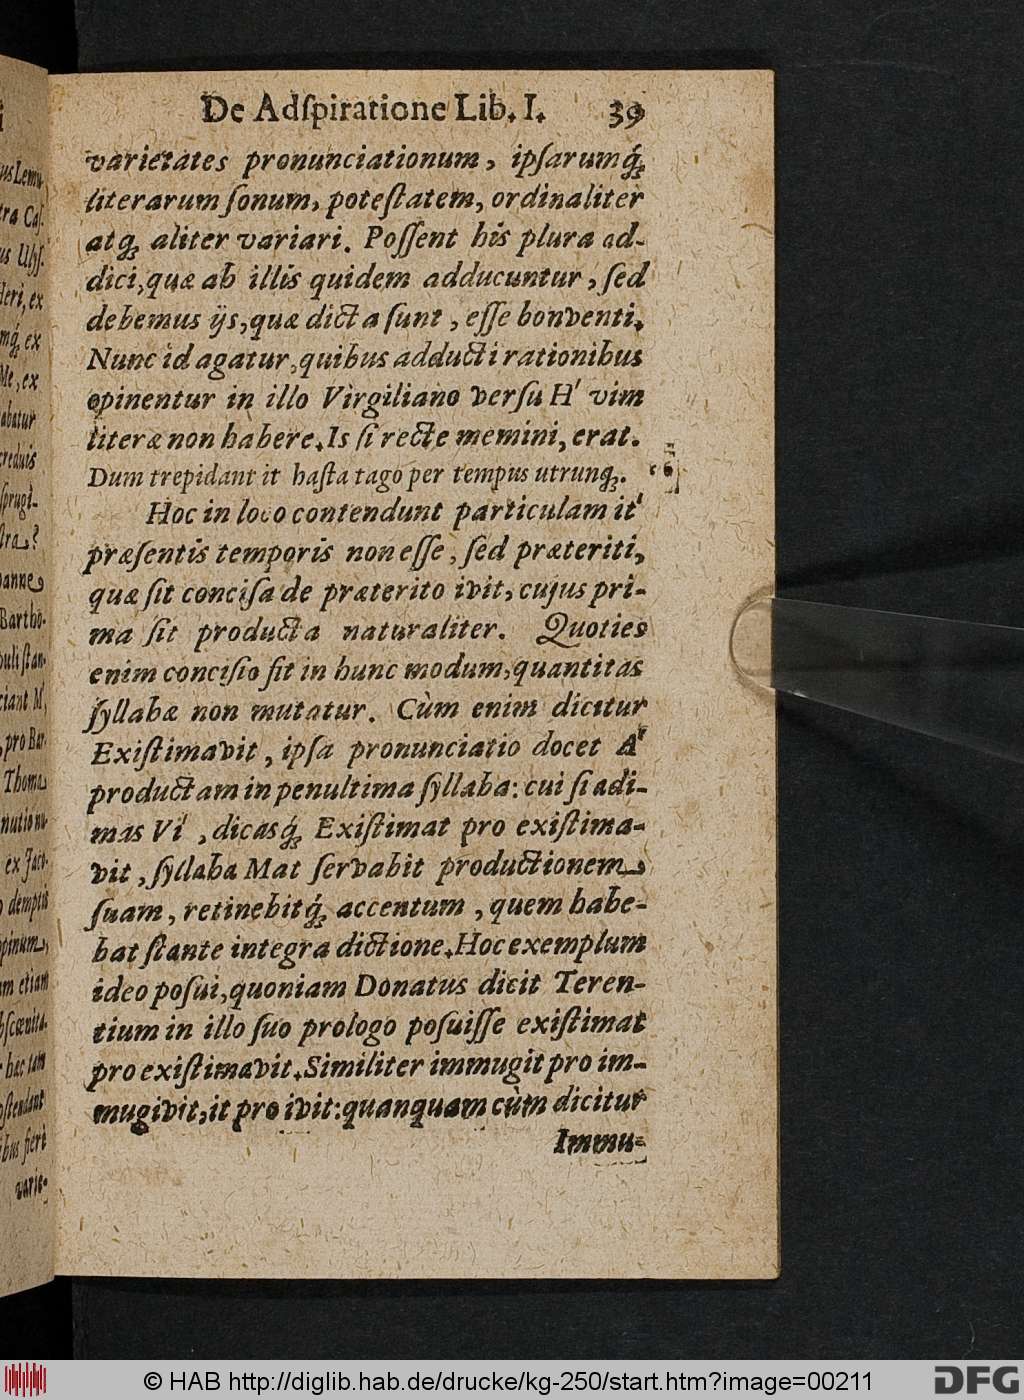 De Adſpiratione Lib. I. 39
varietates pronunciationum, ipſarumq́;
literarum ſonum, poteſtatem, ordinaliter
atq; aliter variari. Poſſent his plura ad-
dici, quæ ab illis quidem adducuntur, ſed
debemus ijs, quæ dicta ſunt, eſſe bonventi.
Nunc id agatur, quibus adducti rationibus
opinentur in illo Virgiliano verſu H' vim
literæ non habere. Is ſi recte memini, erat.
Dum trepidant it haſta tago per tempus utrunq;.
Hoc in loco contendunt particulam it'
præſentis temporis non eſſe, ſed præteriti,
quæ ſit conciſa de præterito ivit, cujus pri-
ma ſit producta naturaliter. Quoties
enim conciſio fit in hunc modum, quantitas
ſyllabæ non mutatur. Cùm enim dicitur
Exiſtimavit, ipſa pronunciatio docet A'
productam in penultima ſyllaba: cui ſi adi-
mas Vi, dicasq́; Exiſtimat pro exiſtima-
vit, ſyllaba Mat ſervabit productionem
ſuam, retinebitq́; accentum, quem habe-
bat ſtante integra dictione. Hoc exemplum
ideo poſui, quoniam Donatus dicit Teren-
tium in illo ſuo prologo poſuiſſe exiſtimat
pro exiſtimavit. Similiter immugit pro im-
mugivit, it pro ivit: quanquam cùm dicitur
Immu-
© HAB http://diglib.hab.de/drucke/kg-250/start.htm?image=00211
DFG